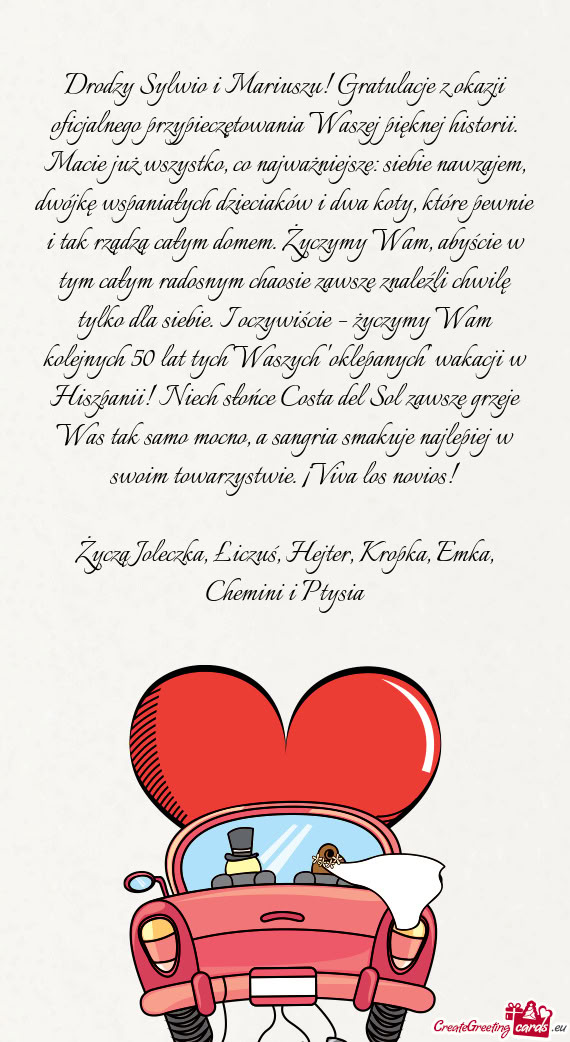 Drodzy Sylwio i Mariuszu! Gratulacje z okazji
oficjalnego przypieczętowania Waszej pięknej historii.
Macie już wszystko, co najważniejsze: siebie nawzajem,
dwójkę wspaniałych dzieciaków i dwa koty, które pewnie
i tak rządzą całym domem. Życzymy Wam, abyście w
tym całym radosnym chaosie zawsze znaleźli chwilę
tylko dla siebie. I oczywiście – życzymy Wam
kolejnych 50 lat tych Waszych 'oklepanych' wakacji w
Hiszpanii! Niech słońce Costa del Sol zawsze grzeje
Was tak samo mocno, a sangria smakuje najlepiej w
swoim towarzystwie. ¡Viva los novios!
Życzą Joleczka, Łiczuś, Hejter, Kropka, Emka,
Chemini i Ptysia
CreateGreeting cards .eu